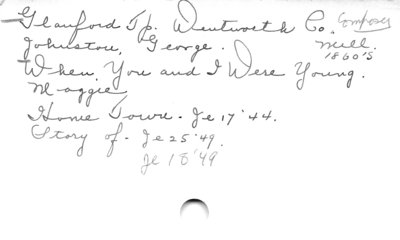 Glanford Tp. Wentworth Co. Composer
Johnston, George. Mell.
1860'S
When You and I Were Young.
Maggie.
Home Town - Je 17 '44.
Story of - Je 25 '49.
Je 18 '49